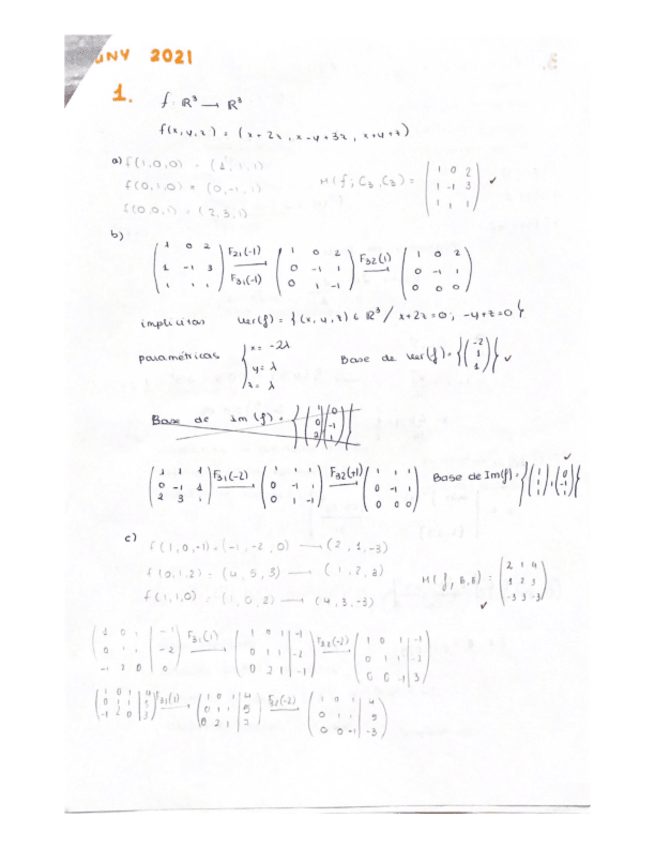 JUNY 2021
1. f: R³ → R³
f(x,y,z) = (x+2z, x-y+3z, x+y+z)
a) f(1,0,0) = (1,1,1)
f(0,1,0) = (0,-1,1)
f(0,0,1) = (2,3,1)
M(f, C₃, C₃) = (1 0 2 / 1 -1 3 / 1 1 1) ✓
b)
(1 0 2 / 1 -1 3 / 1 1 1) F₂₁(-1) F₃₁(-1) → (1 0 2 / 0 -1 1 / 0 1 -1) F₃₂(1) → (1 0 2 / 0 -1 1 / 0 0 0)
implicitas Ker(f) = {(x,y,z) ∈ R³ / x+2z=0; -y+z=0}
paramétricas { x = -2λ y = λ z = λ Base de Ker(f) = {(-2 / 1 / 1)} ✓
Base de Im(f) = {(1 / 0 / 2)(0 / -1 / 1)}
(1 1 1 / 0 -1 1 / 2 3 1) F₃₁(-2) → (1 1 1 / 0 -1 1 / 0 1 -1) F₃₂(+1) → (1 1 1 / 0 -1 1 / 0 0 0) Base de Im(f) = {(1 / 1 / 1), (0 / -1 / 1)} ✓
c)
f(1,0,-1) = (-1,-2,0) → (2,1,-3)
f(0,1,2) = (4,5,3) → (1,2,3)
f(1,1,0) = (1,0,2) → (4,3,-3)
M(f, B, B) = (2 1 4 / 1 2 3 / -3 3 -3) ✓
(1 0 1 | -1 / 0 1 1 | -2 / -1 2 0 | 0) F₃₁(1) → (1 0 1 | -1 / 0 1 1 | -2 / 0 2 1 | -1) F₃₂(-2) → (1 0 1 | -1 / 0 1 1 | -2 / 0 0 -1 | 3)
(1 0 1 | 4 / 0 1 1 | 5 / -1 2 0 | 3) F₃₁(1) → (1 0 1 | 4 / 0 1 1 | 5 / 0 2 1 | 7) F₃₂(-2) → (1 0 1 | 4 / 0 1 1 | 5 / 0 0 -1 | -3)